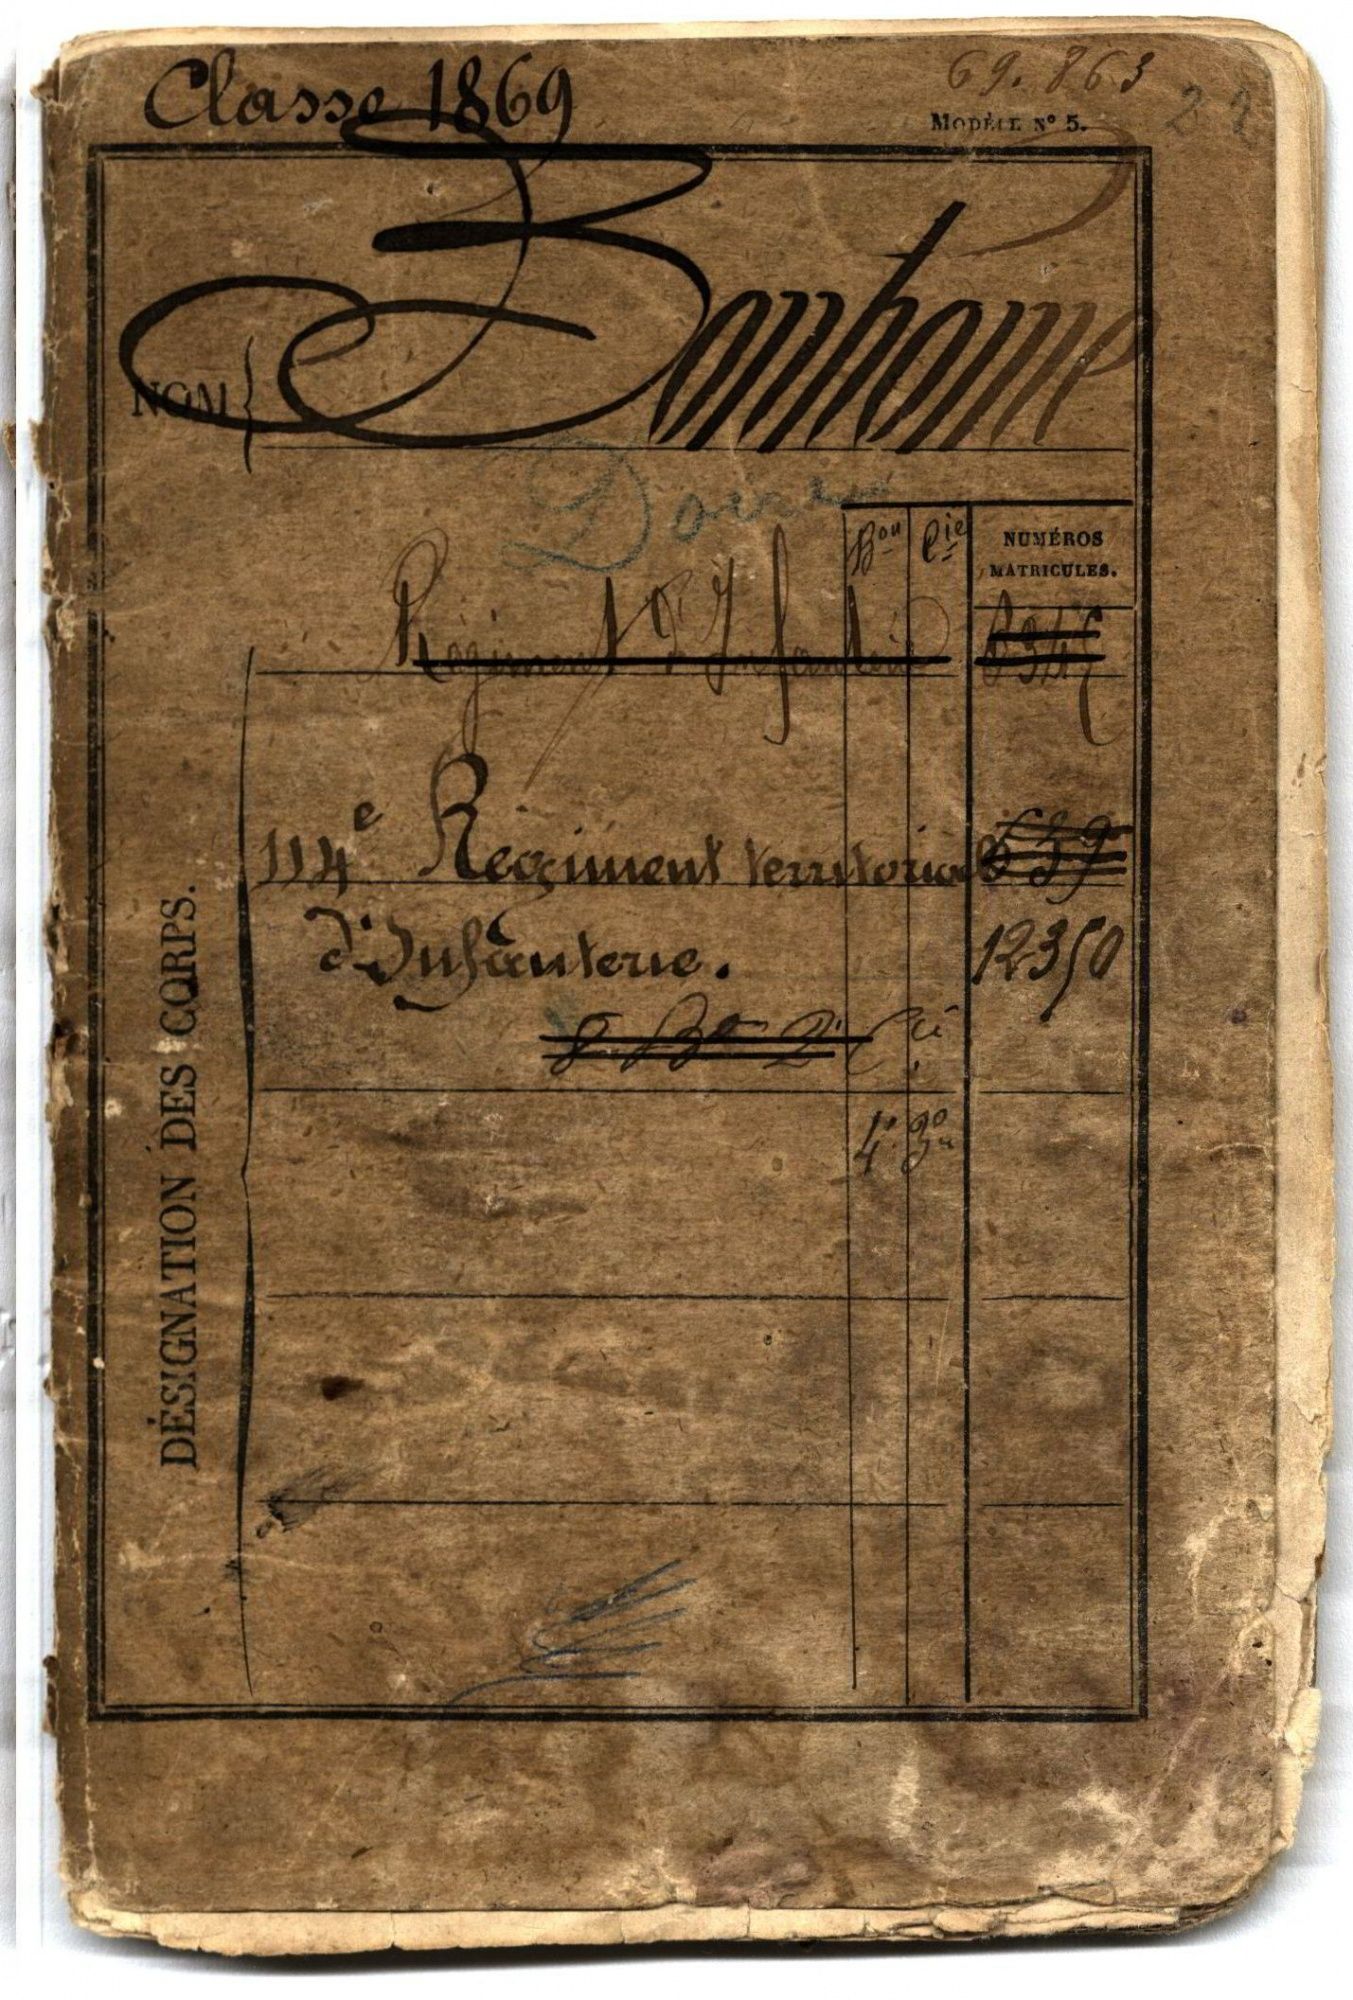 Classe 1869
69.863
MODÈLE N° 5.
NOM
Bonhome
Bon Cie NUMÉROS
MATRICULES.
Régiment d'Infanterie
114e Régiment territorial
d'Infanterie. 12350
8e Bon 2e Cie
4e 3e
DÉSIGNATION DES CORPS.